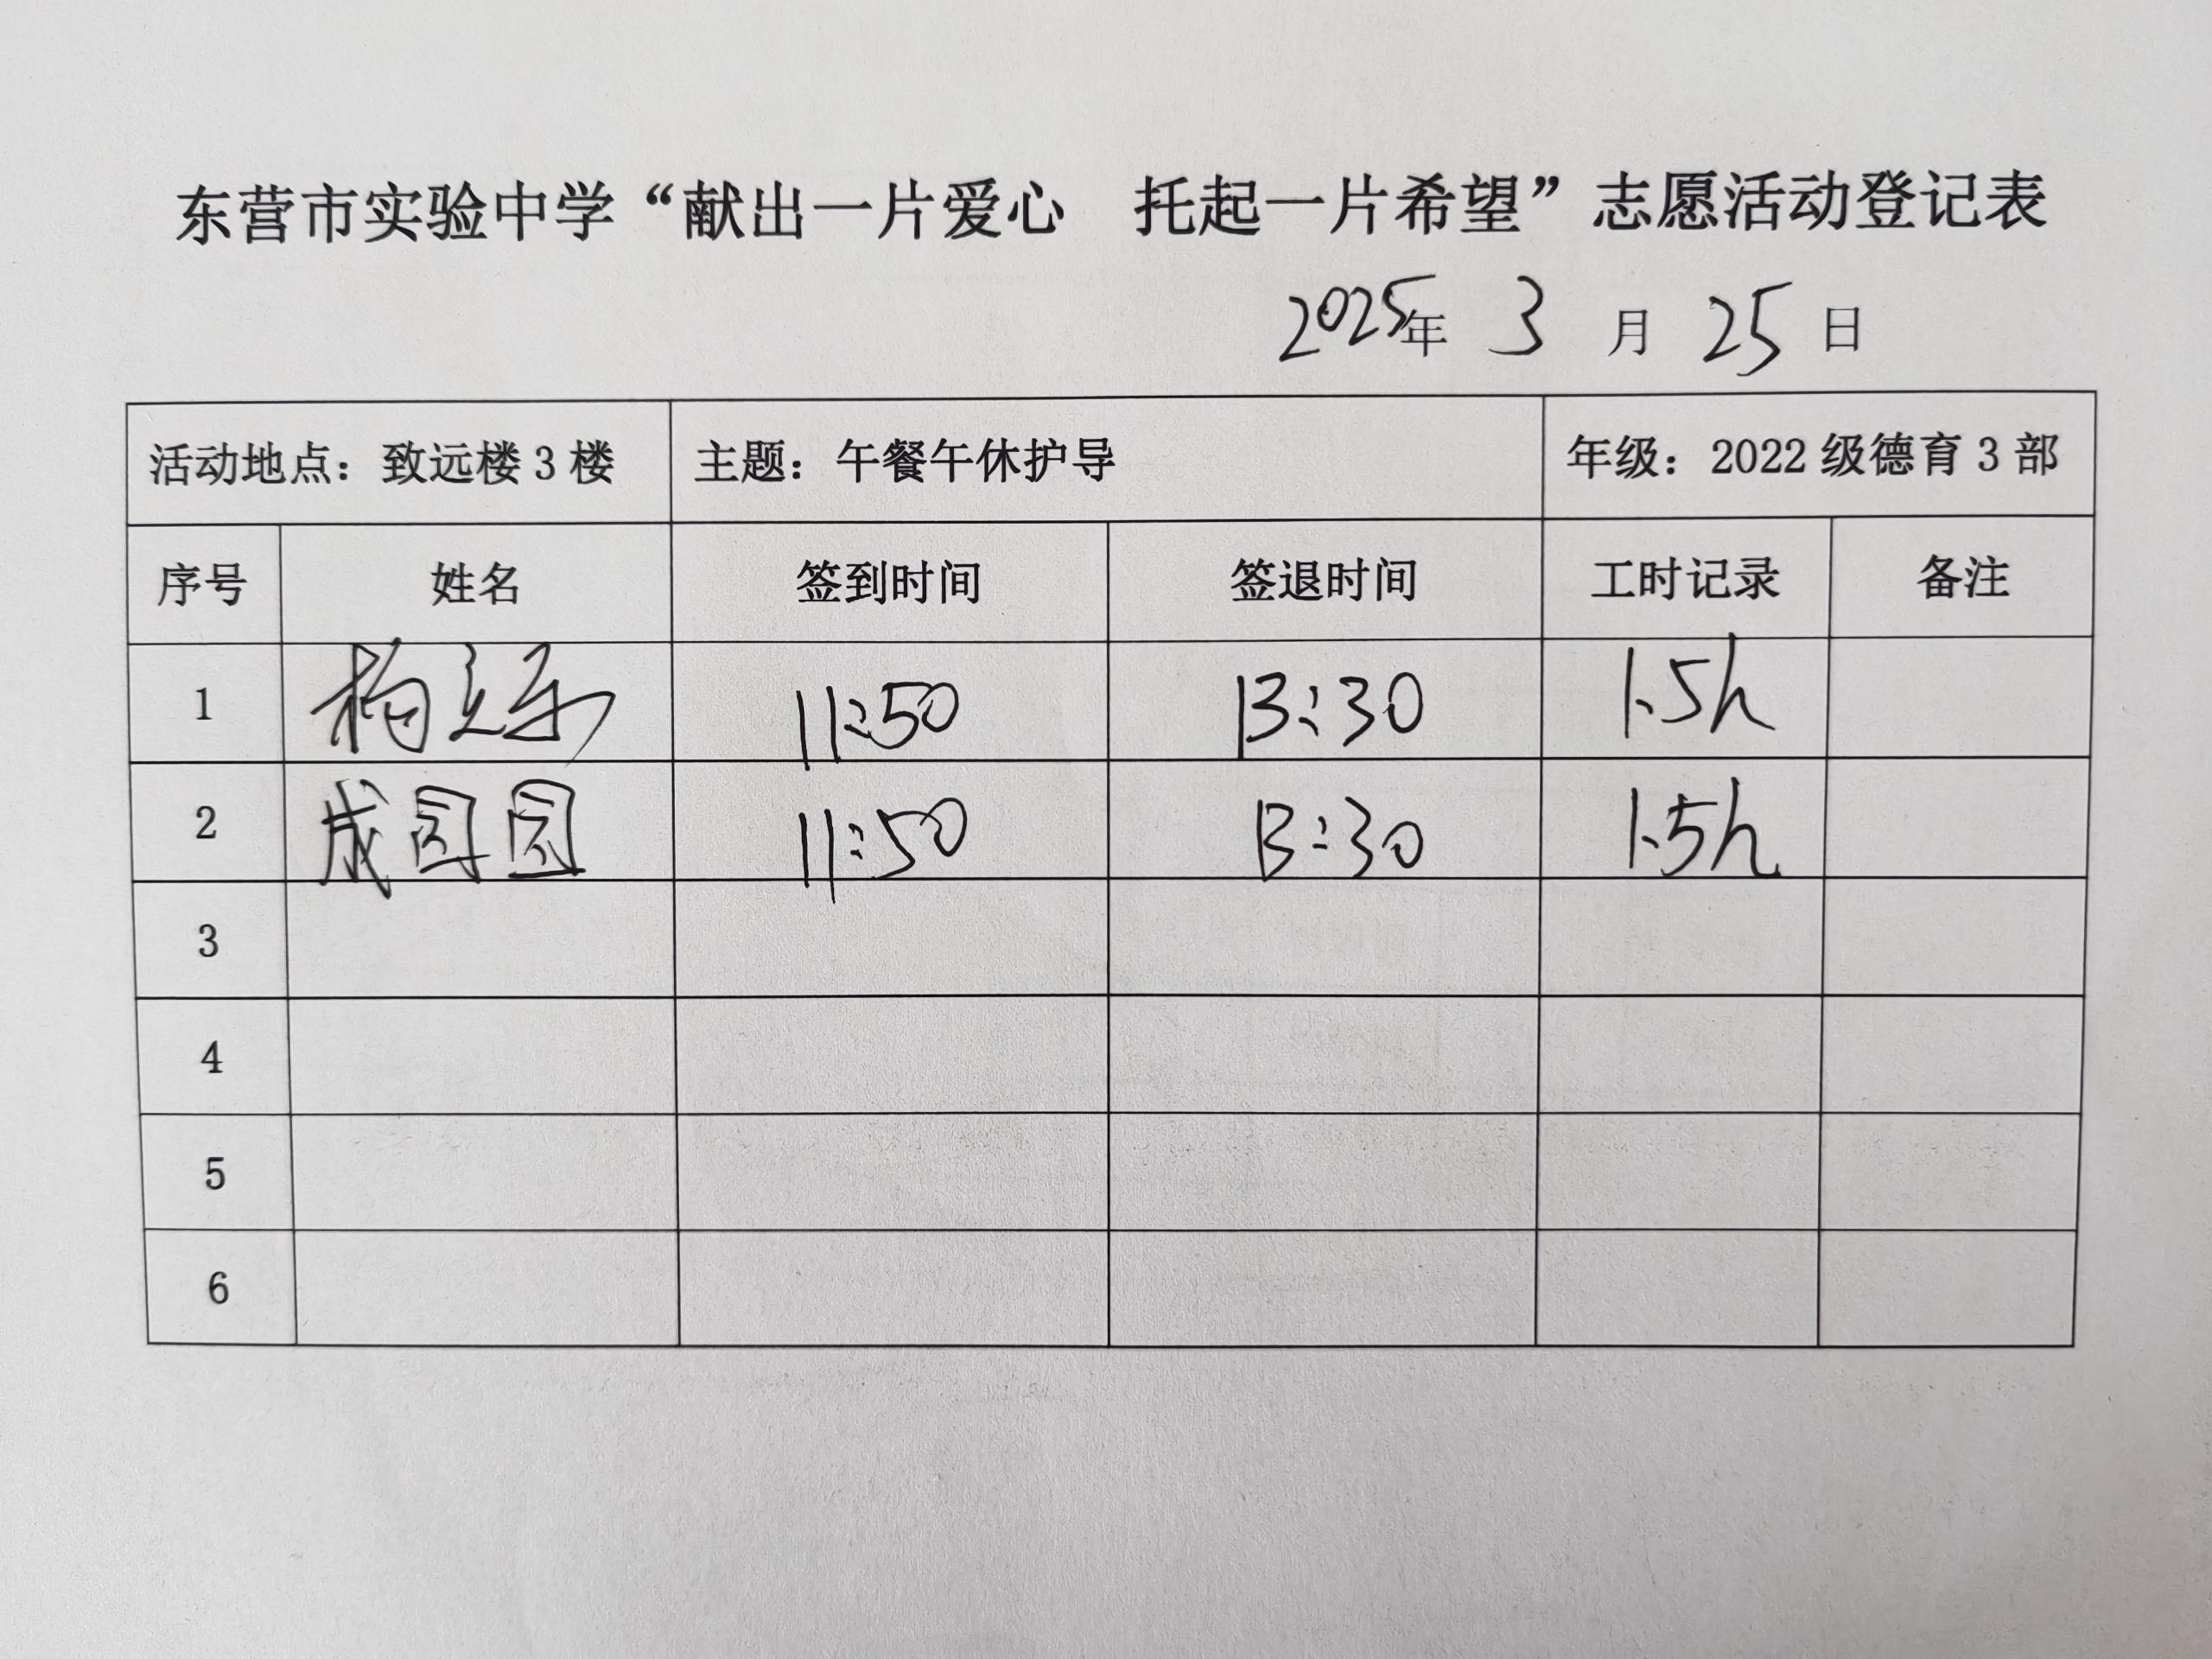 东营市实验中学“献出一片爱心 托起一片希望”志愿活动登记表
2025年 3 月 25 日
活动地点：致远楼3楼 主题：午餐午休护导 年级：2022级德育3部
序号 姓名 签到时间 签退时间 工时记录 备注
1 11:50 13:30 1.5h
2 成园园 11:50 13:30 1.5h
3
4
5
6